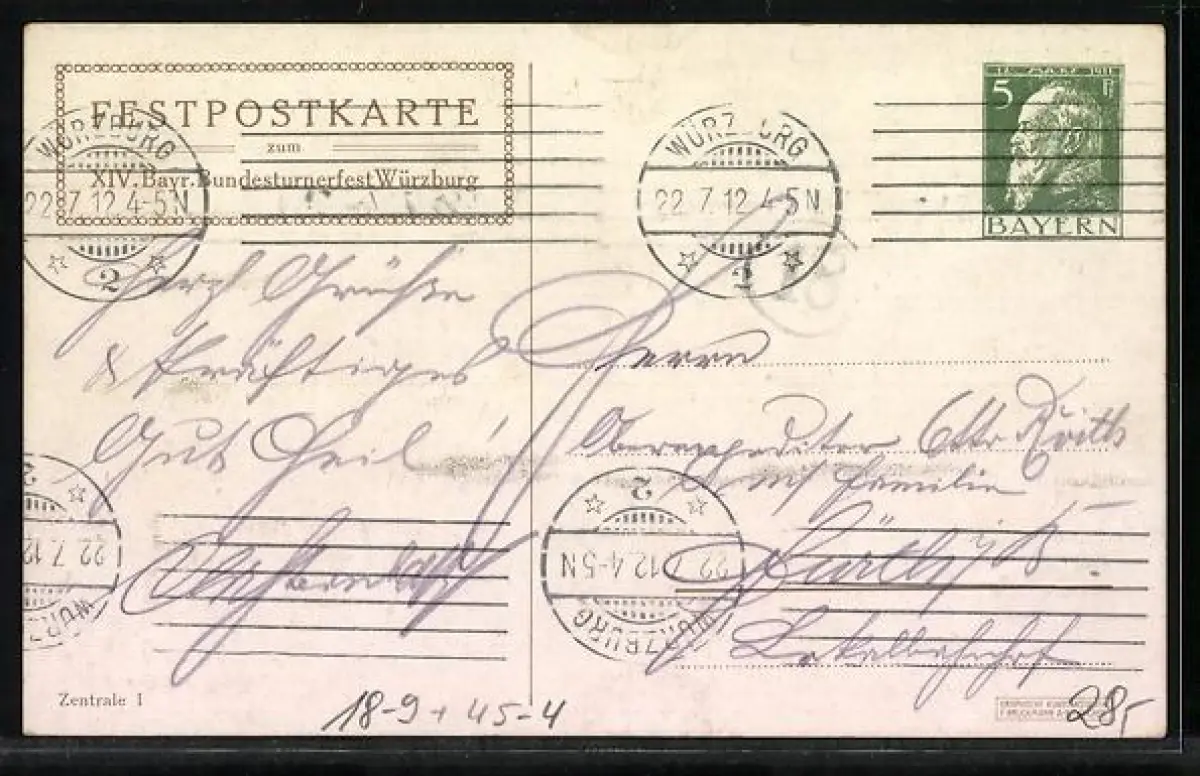 FESTPOSTKARTE
zum
XIV. Bayr. Bundesturnerfest Würzburg
WÜRZBURG
22.7.12.4-5N
2
WÜRZBURG
22.7.12.4-5N
2
12. MÄRZ 1911
5 Pf
BAYERN
Herzl Grüße
& kräftiges
Gut Heil!
Herrn
Oberexpeditor Otto
m/ Familie
Lokalbahnhof
2
22.7.12
WÜRZBURG
2
22.7.12.4-5N
WÜRZBURG
Zentrale I
18-9+45-4
28,-